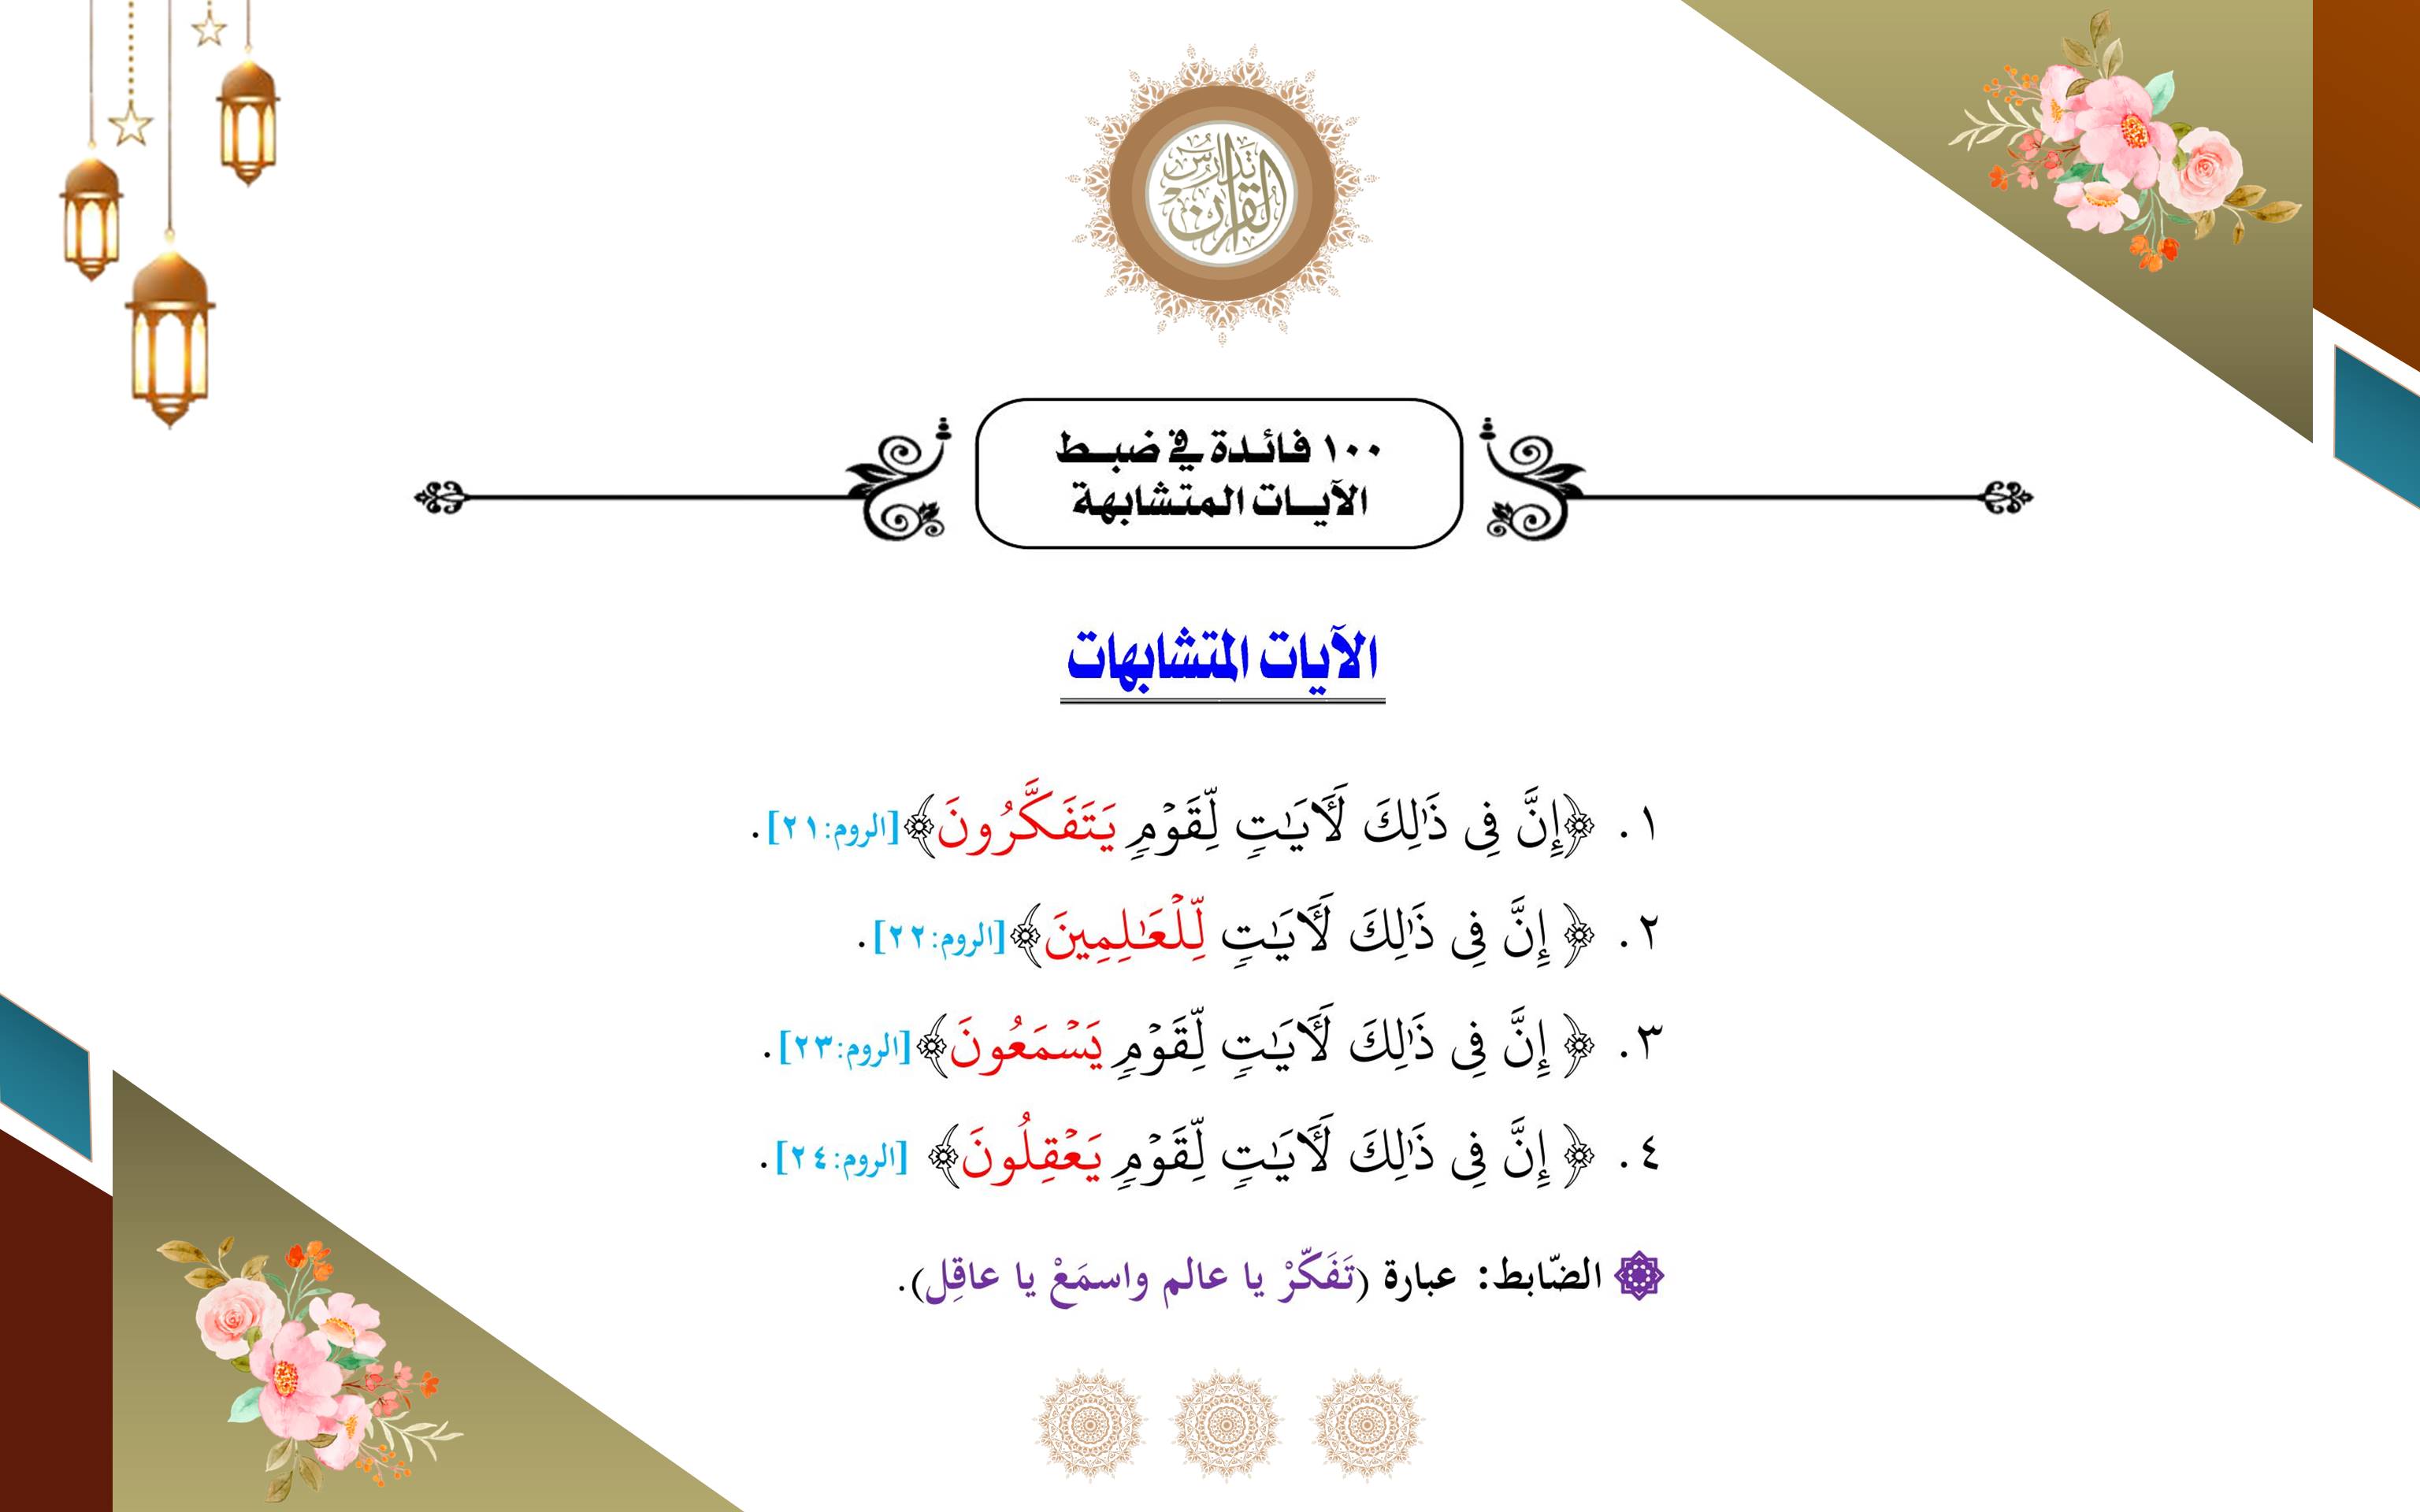 تدارس القرآن
١٠٠ فائدة في ضبط
الآيات المتشابهة
الآيات المتشابهات
١. ﴿إِنَّ فِى ذَٰلِكَ لَأَيَـٰتٍ لِّقَوْمٍ يَتَفَكَّرُونَ﴾[الروم:٢١].
٢. ﴿ إِنَّ فِى ذَٰلِكَ لَأَيَـٰتٍ لِّلْعَـٰلِمِينَ﴾[الروم:٢٢].
٣. ﴿ إِنَّ فِى ذَٰلِكَ لَأَيَـٰتٍ لِّقَوْمٍ يَسْمَعُونَ﴾[الروم:٢٣].
٤. ﴿ إِنَّ فِى ذَٰلِكَ لَأَيَـٰتٍ لِّقَوْمٍ يَعْقِلُونَ﴾ [الروم:٢٤].
الضّابط: عبارة (تَفَكّرْ يا عالم واسمَعْ يا عاقِل).